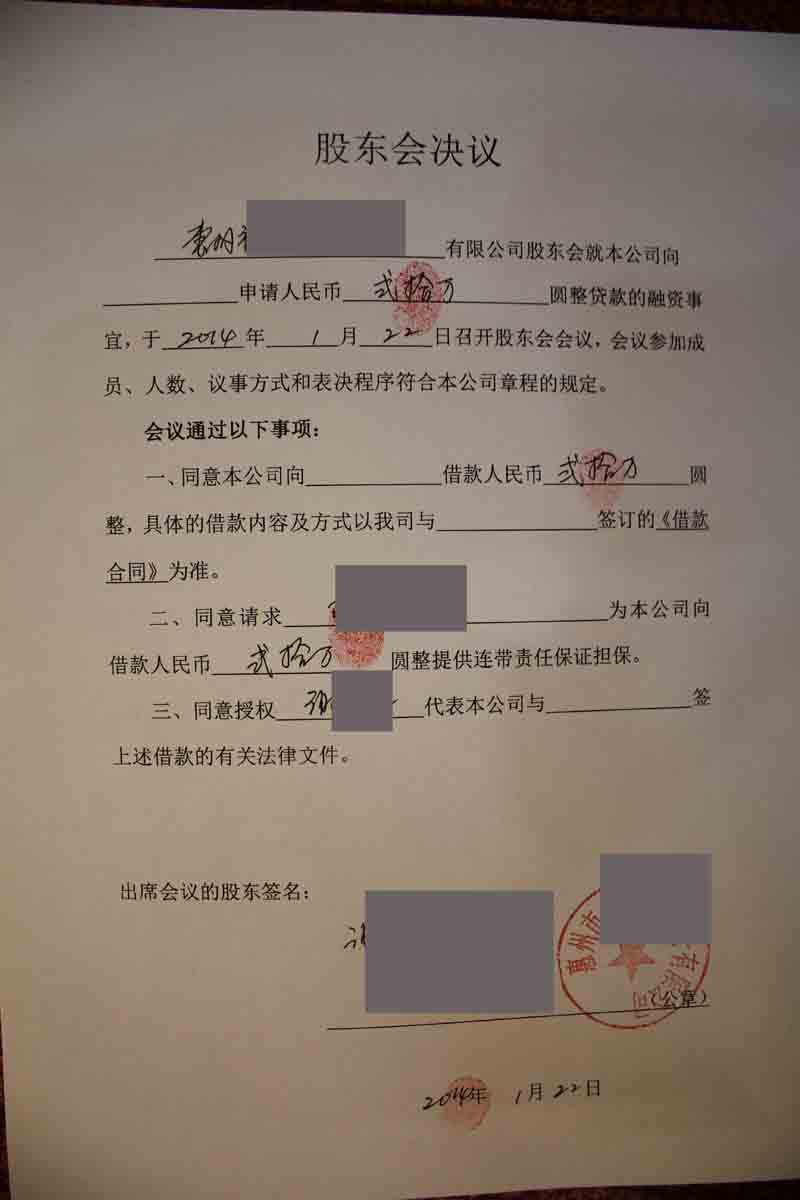 股东会决议
惠州市 有限公司股东会就本公司向
申请人民币 弍拾万 圆整贷款的融资事
宜，于 2014 年 1 月 22 日召开股东会会议，会议参加成
员、人数、议事方式和表决程序符合本公司章程的规定。
会议通过以下事项：
一、同意本公司向 借款人民币 弍拾万 圆
整，具体的借款内容及方式以我司与 签订的《借款
合同》为准。
二、同意请求 为本公司向
借款人民币 弍拾万 圆整提供连带责任保证担保。
三、同意授权 代表本公司与 签
上述借款的有关法律文件。
出席会议的股东签名：
惠州市 有限公司
（公章）
2014年 1月22日